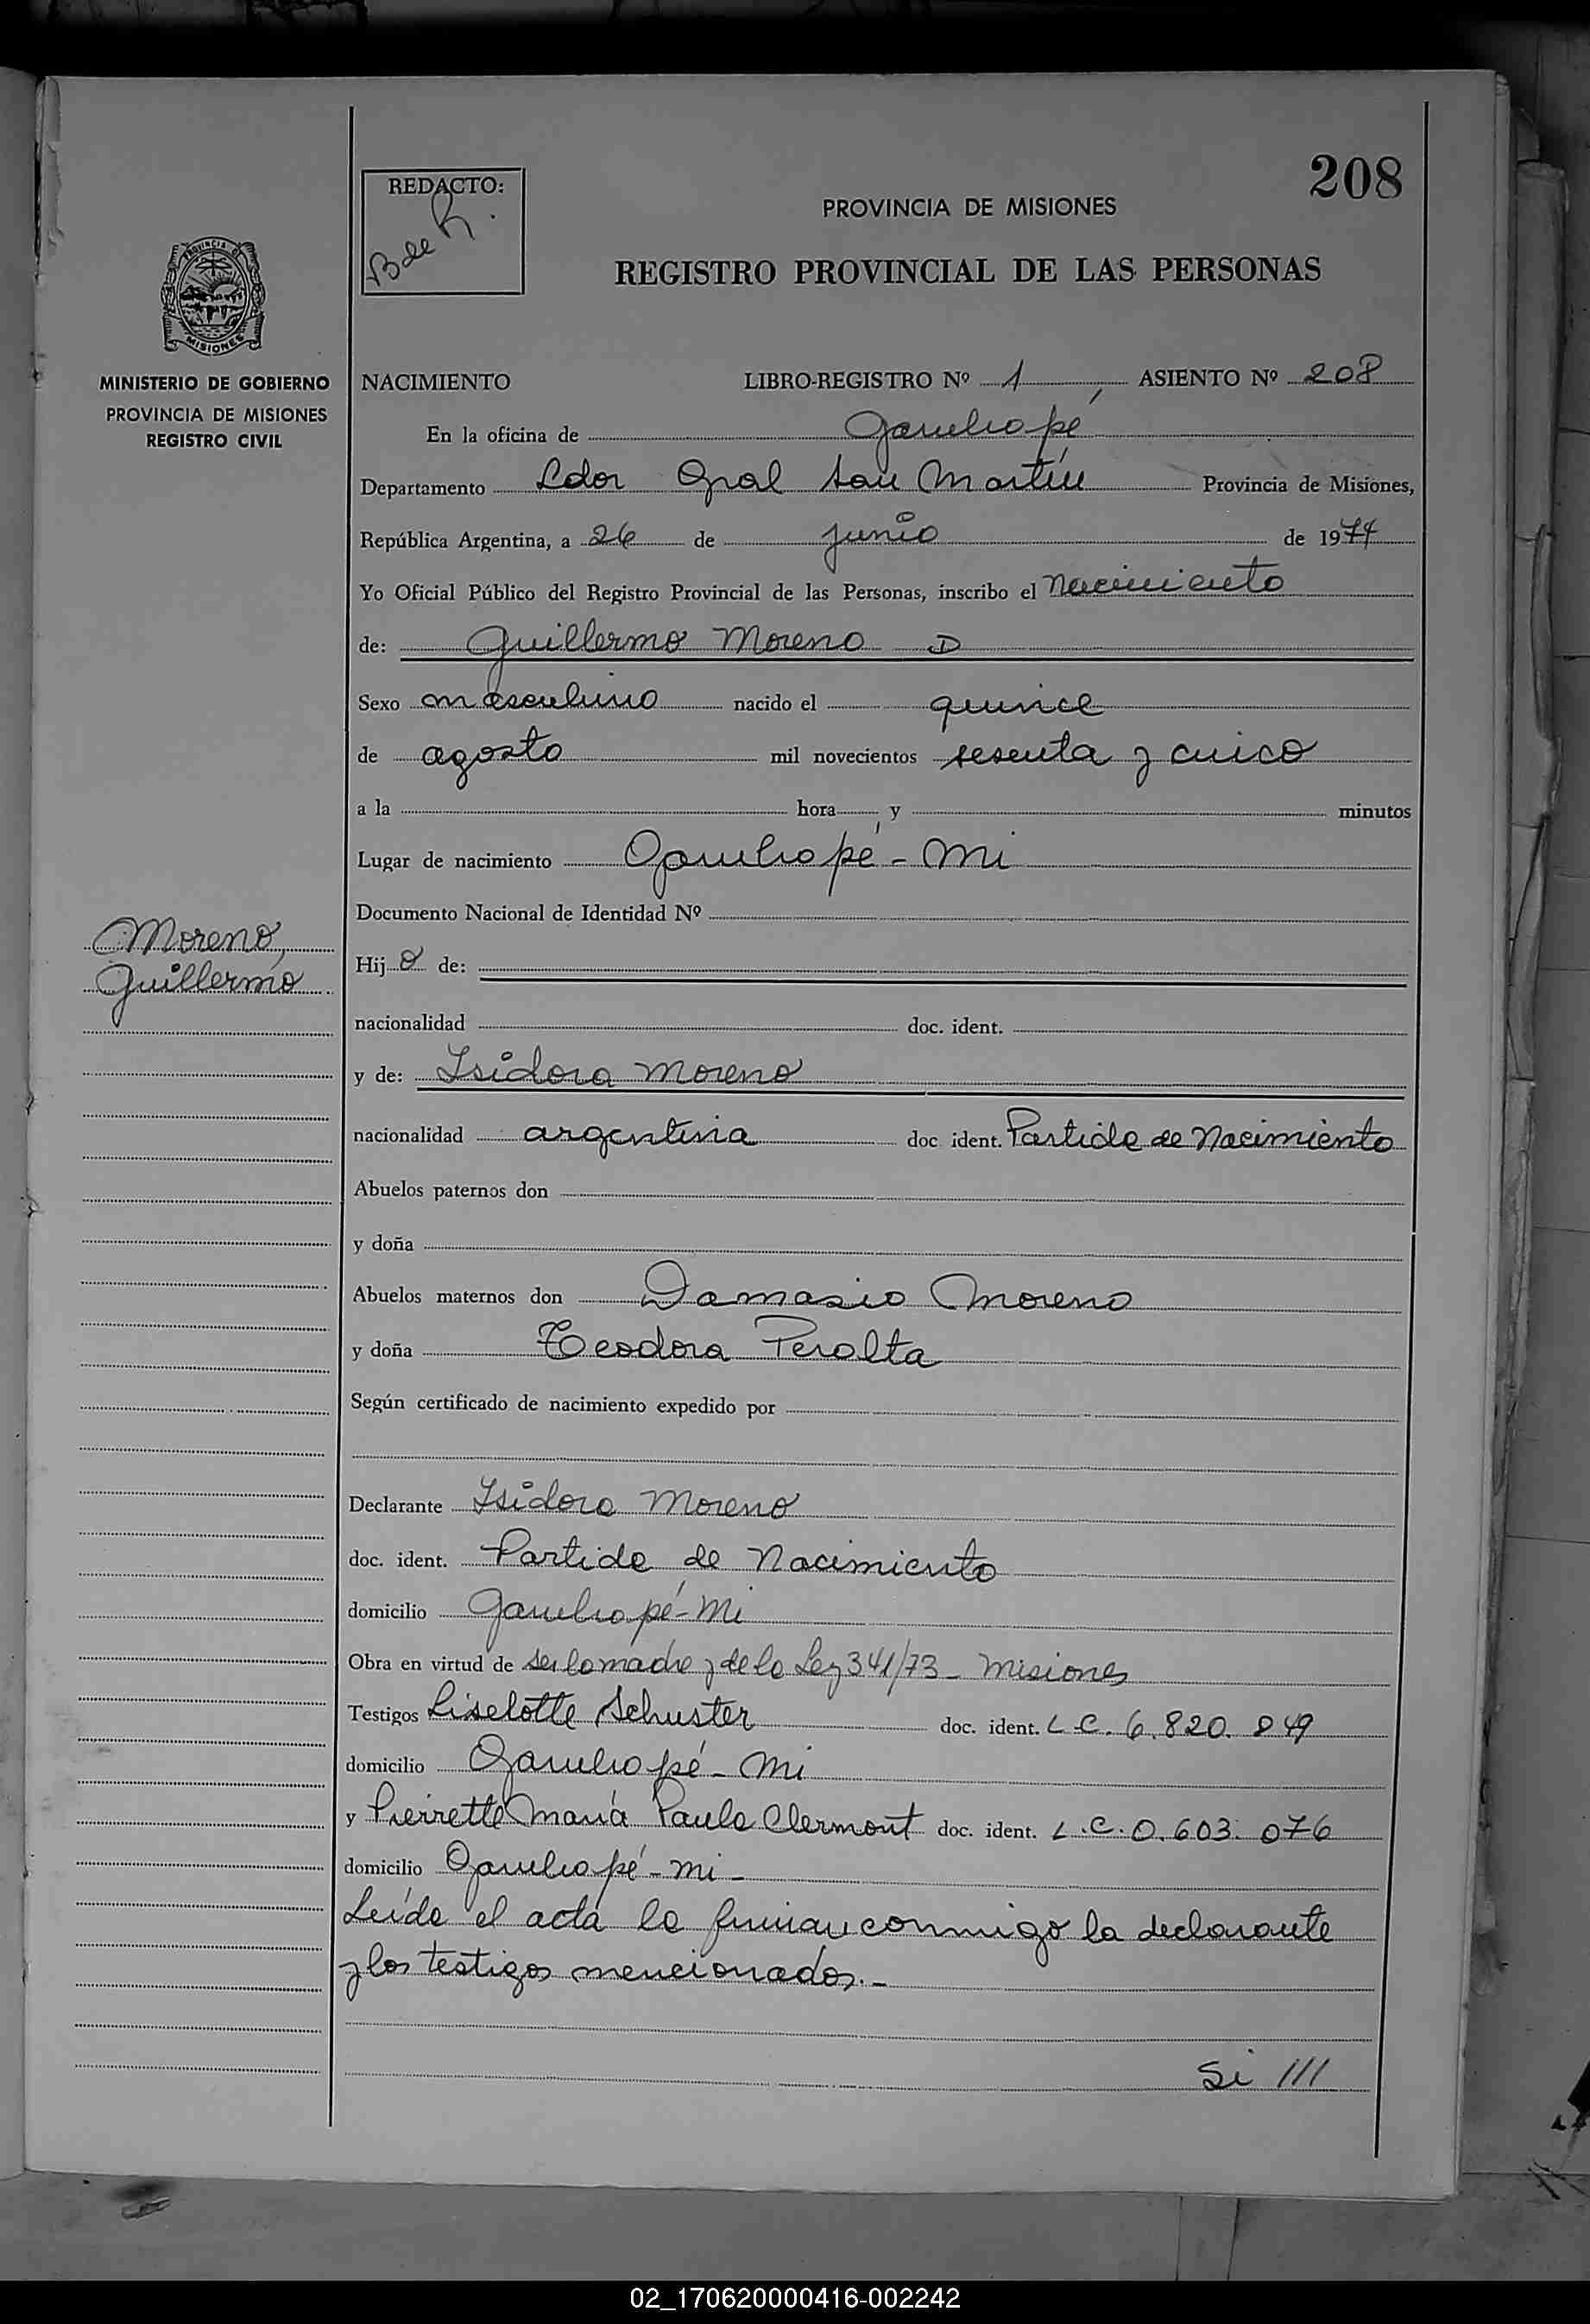 208
REDACTO:
B de R.
PROVINCIA DE MISIONES
REGISTRO PROVINCIAL DE LAS PERSONAS
PROVINCIA DE
MISIONES
MINISTERIO DE GOBIERNO
PROVINCIA DE MISIONES
REGISTRO CIVIL
NACIMIENTO LIBRO-REGISTRO Nº 1 ASIENTO Nº 208
En la oficina de Garuhapé
Departamento Ldor Gral San Martín Provincia de Misiones,
República Argentina, a 26 de junio de 1974
Yo Oficial Público del Registro Provincial de las Personas, inscribo el Nacimiento
de: Guillermo Moreno
Sexo masculino nacido el quince
de agosto mil novecientos sesenta y cinco
a la hora y minutos
Lugar de nacimiento Garuhapé - Mi
Documento Nacional de Identidad Nº
Moreno,
Guillermo
Hijo de:
nacionalidad doc. ident.
y de: Isidora Moreno
nacionalidad argentina doc. ident. Partida de Nacimiento
Abuelos paternos don
y doña
Abuelos maternos don Damasio Moreno
y doña Teodora Peralta
Según certificado de nacimiento expedido por
Declarante Isidora Moreno
doc. ident. Partida de Nacimiento
domicilio Garuhapé - Mi
Obra en virtud de ser la madre y de la Ley 341/73 - Misiones
Testigos Liselotte Schuster doc. ident. L.C. 6.820.849
domicilio Garuhapé - Mi
y Pierrette María Paula Clermont doc. ident. L.C. 0.603.076
domicilio Garuhapé - Mi -
Leída el acta la firman conmigo la declarante
y los testigos mencionados. -
Si ///
02_170620000416-002242